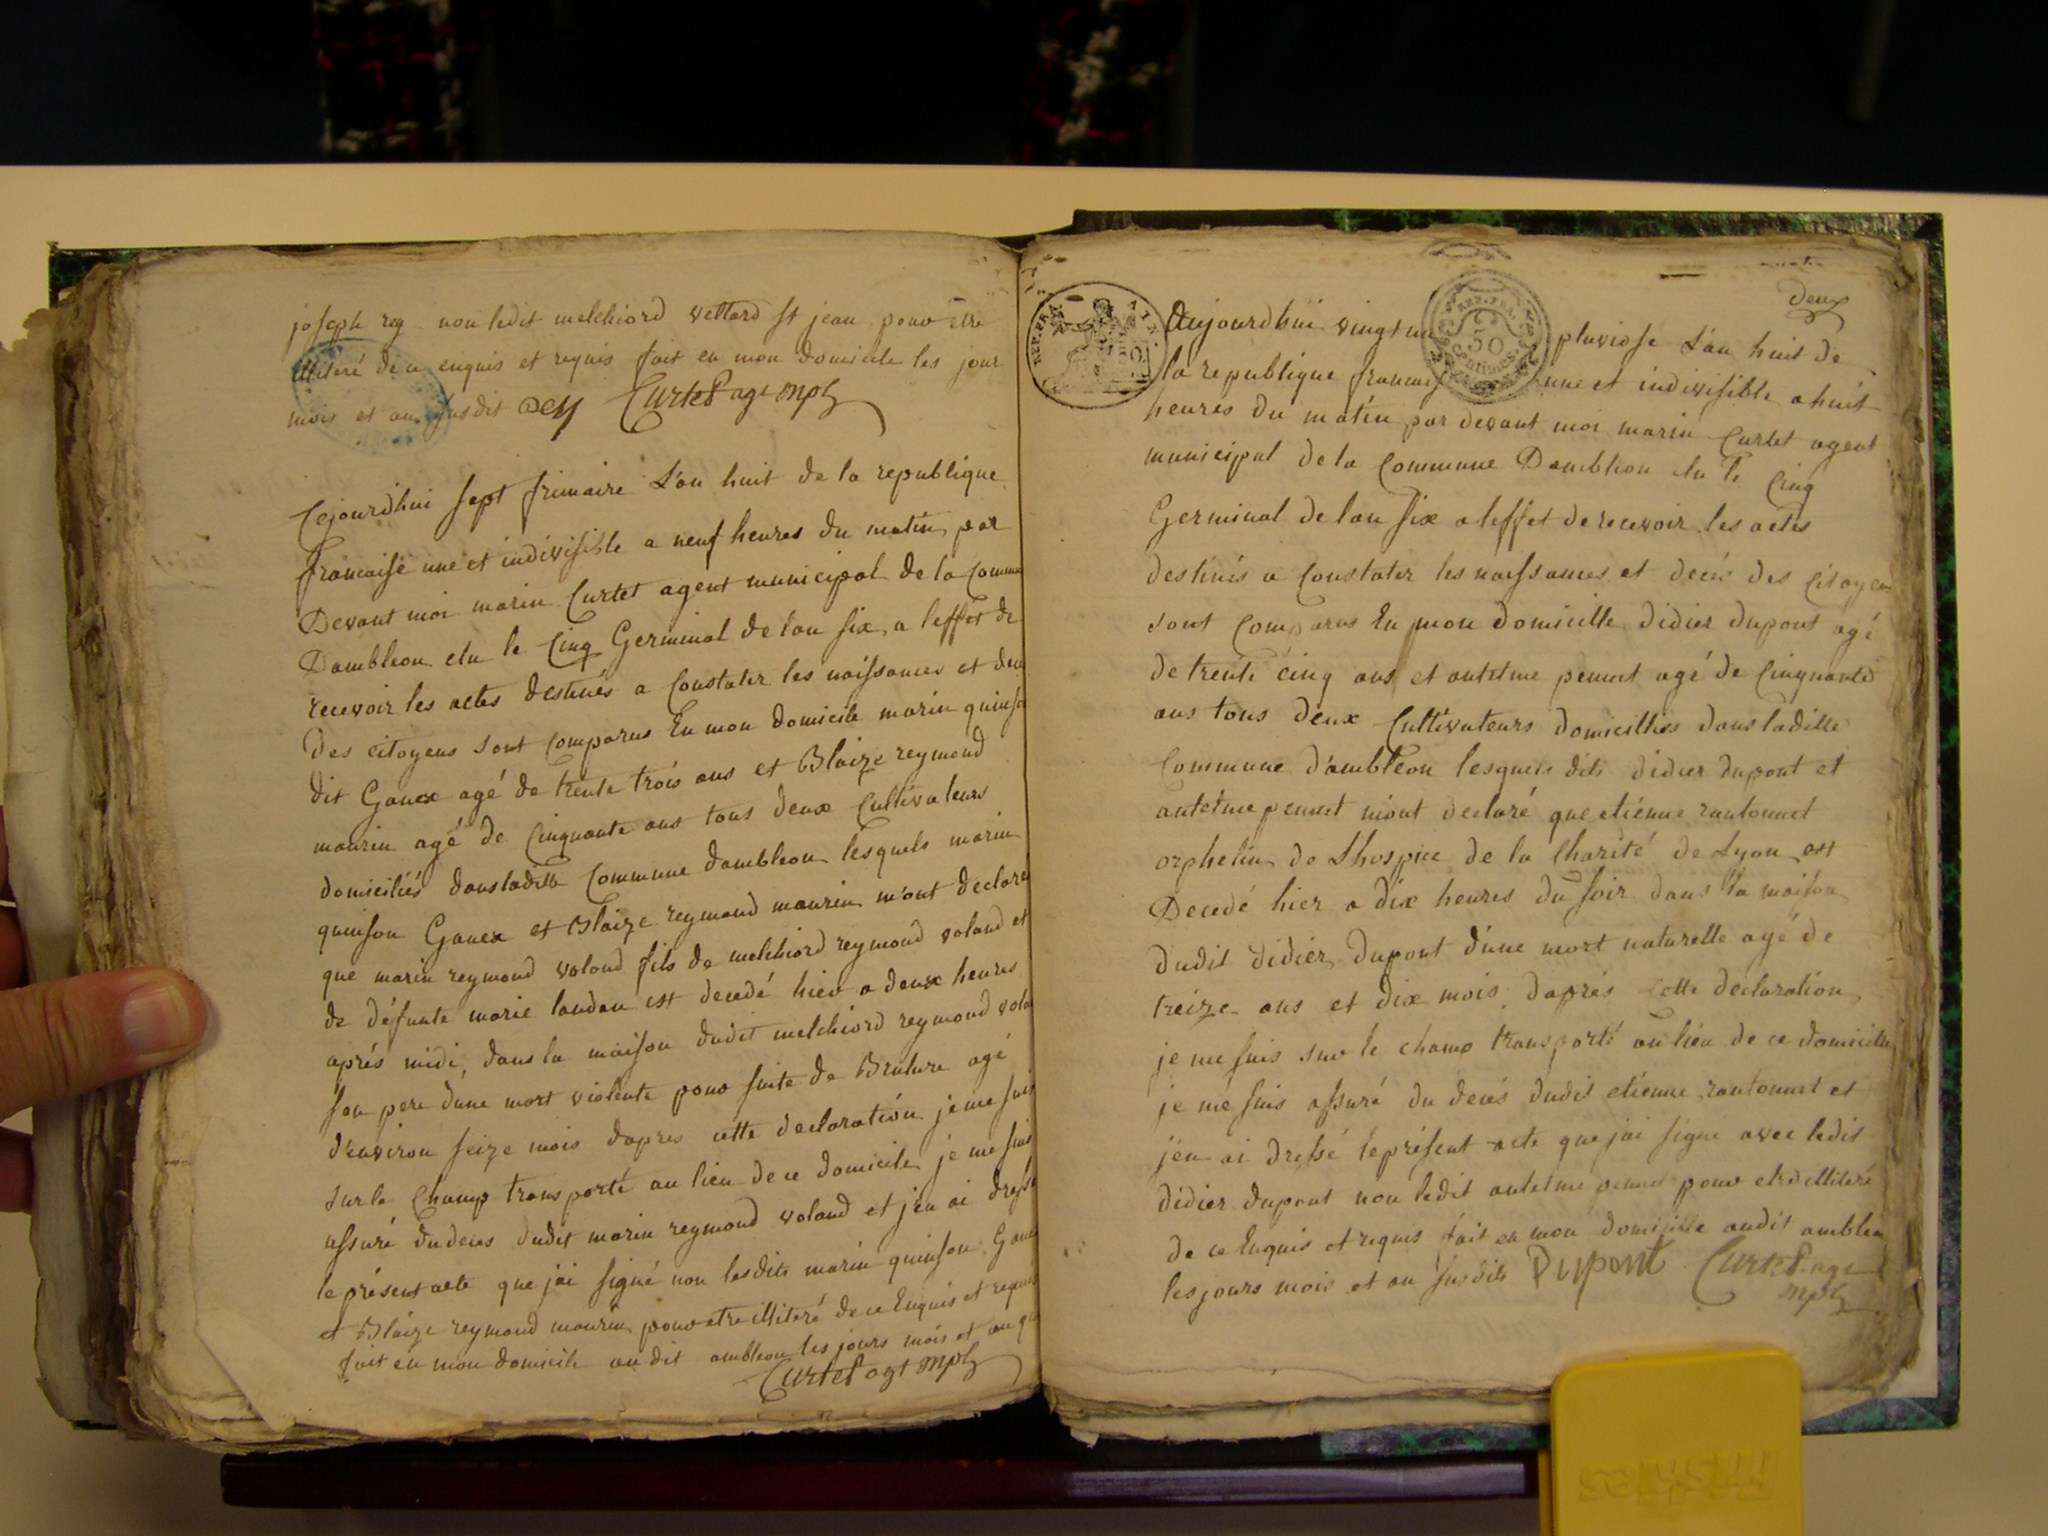 joseph rey non ledit melchiord vettard st jean pour etre
illiteré de ce enquis et requis fait en mon domicile les jour
mois et an susdit Rey Curtet agt mpl
Cejourdhui sept frimaire L'an huit de la republique
francaise une et indivisible a neuf heures du matin par
Devant moi marin Curtet agent municipal de la Commune
Dambleon elu le Cinq Germinal de lan six, a leffet de
recevoir les actes destinés a Constater les naissances et deces
Des citoyens sont comparus En mon domicile marin quinson
dit Ganex agé de trente trois ans et Blaize reymond
maurin agé de Cinquante ans tous deux Cultivateurs
domiciliés dans ladite Commune dambleon, lesquels marin
quinson Ganex et Blaize reymond maurin m'ont declaré
que marin reymond voland fils de melchiord reymond voland et
de défunte marie landau est decedé hier a deux heures
aprés midi, dans la maison dudit melchiord reymond voland
son pere d'une mort violente pour suite de Brulure agé
d'environ seize mois dapres cette declaration je me suis
sur le Champ transporté au lieu de ce domicile, je me suis
assuré du deces dudit marin reymond voland et j'en ai dressé
le présent acte que j'ai signé non lesdits marin quinson Ganex
et Blaize reymond maurin pour etre illiteré de ce Enquis et requis
fait en mon domicile au dit ambleon les jours mois et an que
Curtet agt mpl
deux
REP. FRA.
REP. FRA.
50
Centimes
Aujourdhui vingt pluviose L'an huit de
la republique francaise une et indivisible a huit
heures du matin par devant moi marin Curtet agent
municipal de la Commune Dambleon elu le Cinq
Germinal de lan six a leffet de recevoir les actes
destinés a Constater les naissances et decés des Citoyens
sont Comparus En mon domicille didier dupont agé
de trente cinq ans et antelme pennet agé de Cinquante
ans tous deux Cultivateurs domicilliés dans ladite
Commune d'ambleon lesquels dits didier dupont et
antelme pennet m'ont declaré que etienne rantonnet
orphelin de L'hospice de la Charité de Lyon est
Decedé hier a dix heures du soir dans la maison
dudit didier dupont d'une mort naturelle agé de
treize ans et dix mois, daprés cette declaration
je me suis sur le champ transporté au lieu de ce domicille
je me suis assuré du decés dudit etienne rantonnet et
j'en ai dressé le présent acte que j'ai signé avec ledit
didier dupont non ledit antelme pennet pour etre illiteré
de ce Enquis et requis fait en mon domicille audit ambleon
les jours mois et an susdits Dupont Curtet agt
mpl